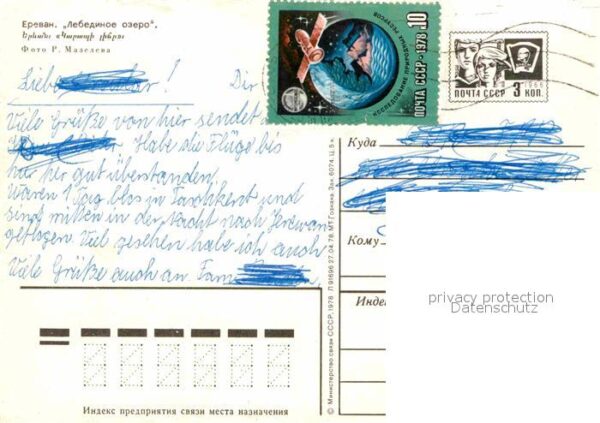 Ереван. „Лебединое озеро“.
Երևան: «Կարապի լիճը»
Фото Р. Мазелева
Liebe ! Dir
Viele Grüße von hier sendet
Habe die Flüge bis
hier her gut überstanden.
Waren 1 Tag blos in Taschkent und
sind mitten in der Nacht nach Jerewan
geflogen. Viel gesehen habe ich auch
Viele Grüße auch an Fam
Индекс предприятия связи места назначения
© Министерство связи СССР, 1978 Л 91696 27.04.78. МТ-Гознака. Зак. 6074. Ц. 5 к.
ИССЛЕДОВАНИЕ ПРИРОДНЫХ РЕСУРСОВ
ПОЧТА СССР · 1978 · 10
1966
ПОЧТА СССР 3 КОП.
Куда
Кому
Инде
privacy protection
Datenschutz